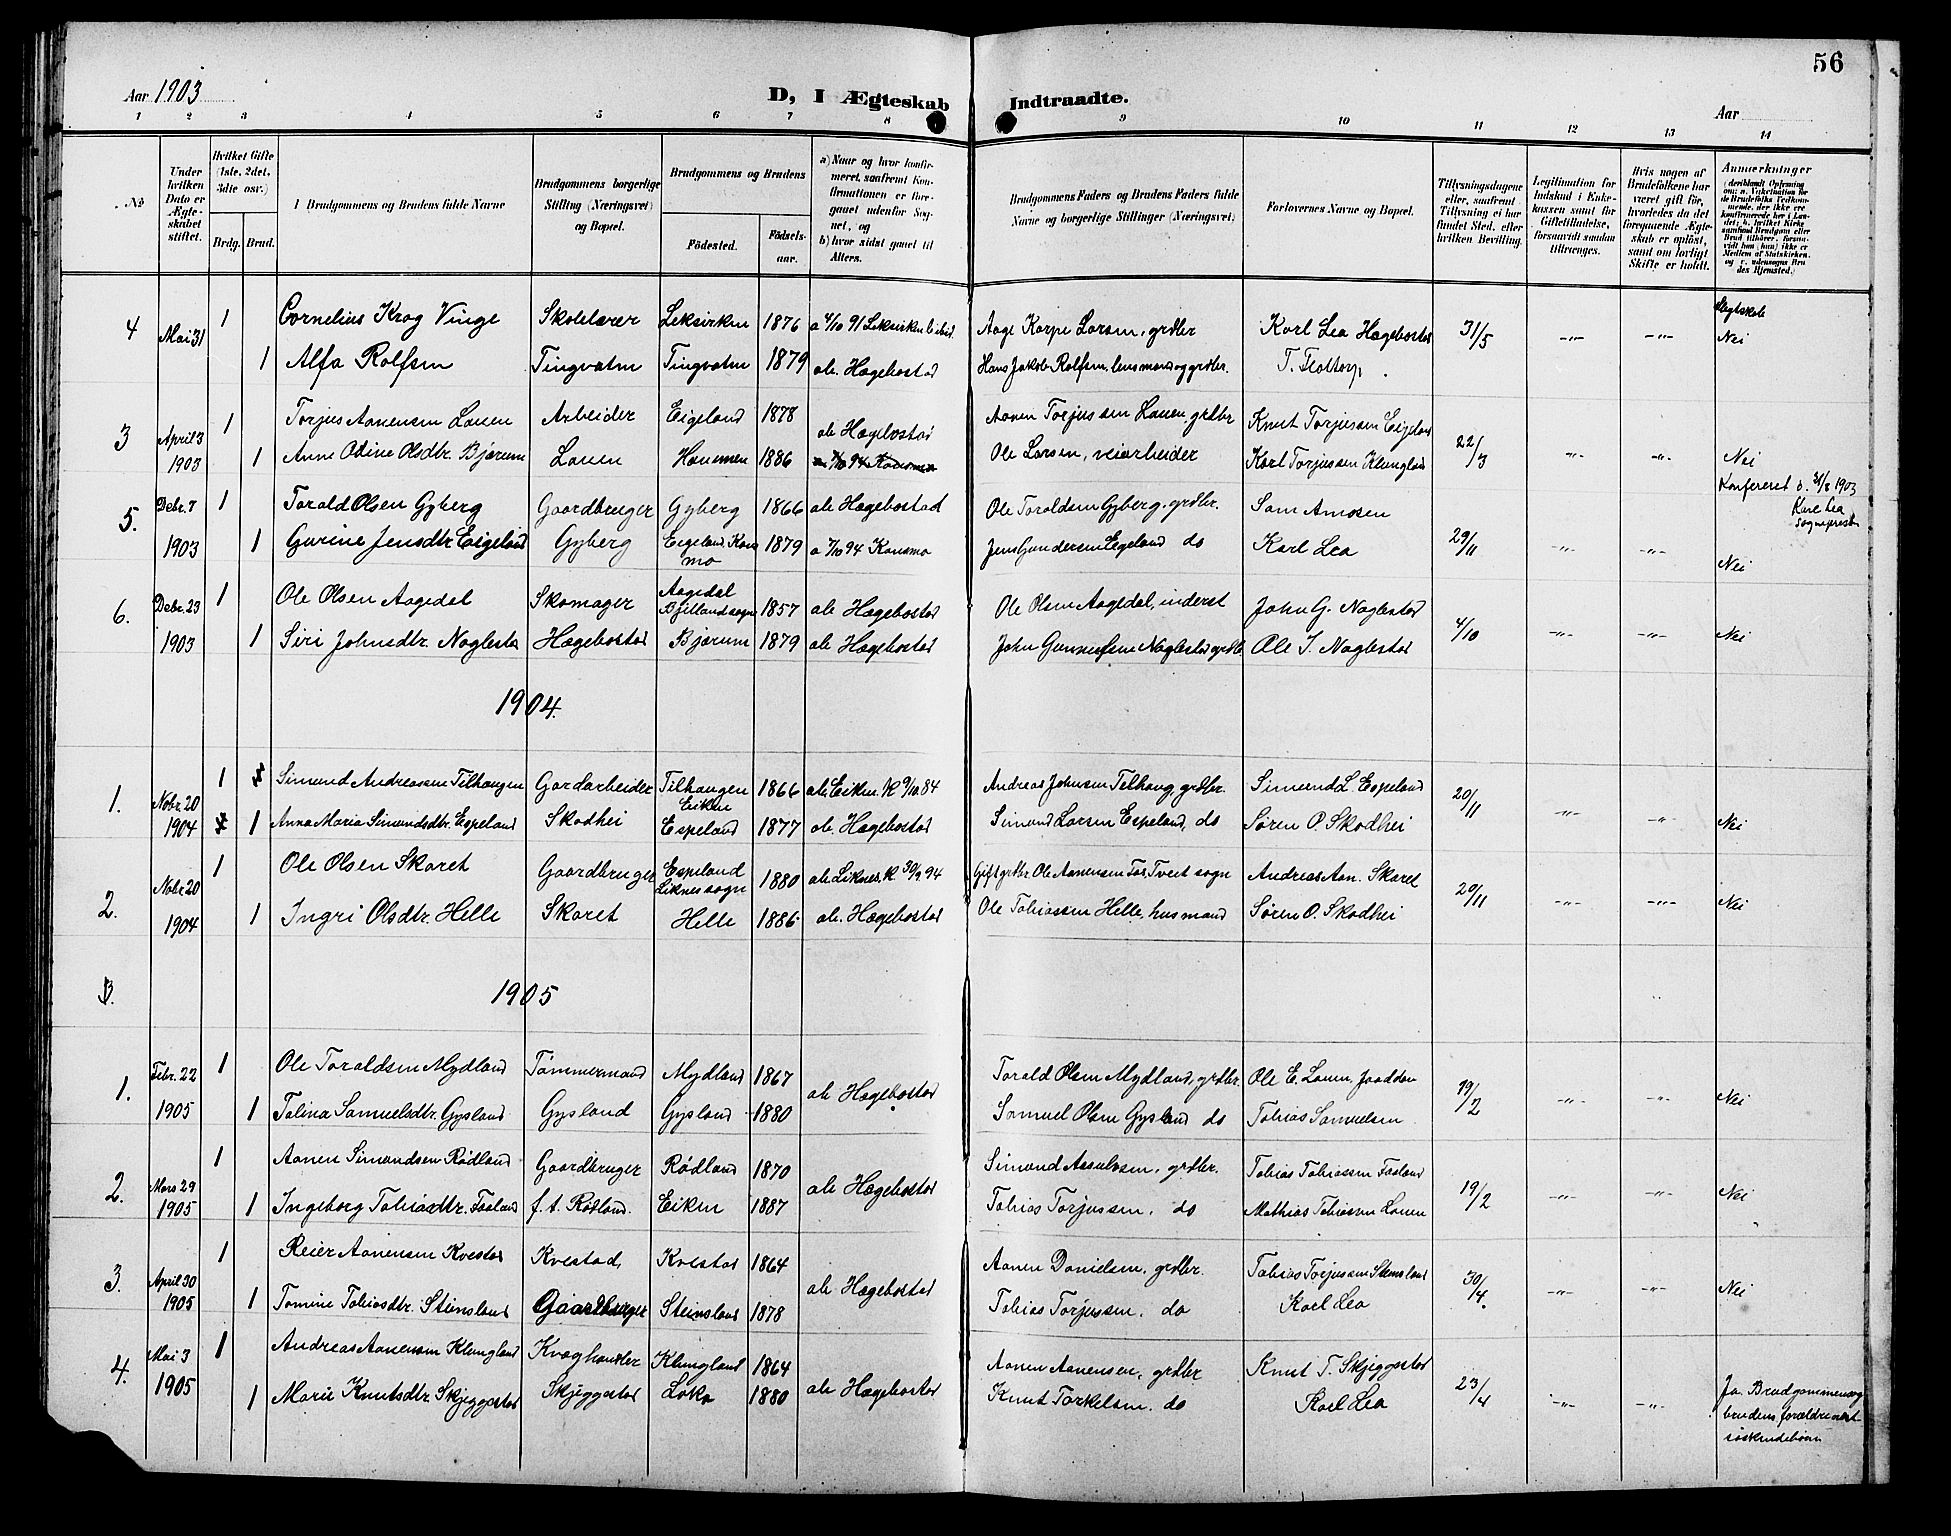 56
Aar 1903
D, I Ægteskab Indtraadte.
Aar
1 2 3 4 5 6 7 8 9 10 11 12 13 14
No
Under hvilken Dato er Ægteskabet stiftet.
Hvilket Gifte (1ste, 2det, 3die osv.)
Brdg. Brud.
Brudgommens og Brudens fulde Navne
Brudgommens borgerlige Stilling (Næringsvei) og Bopæl.
Brudgommens og Brudens
Födested.
Födselsaar.
a) Naar og hvor konfirmeret, saafremt Konfirmationen er foregaaet udenfor Sognet, og
b) hvor sidst gaaet til Alters.
Brudgommens Faders og Brudens Faders fulde Navne og borgerlige Stillinger (Næringsvei)
Forlovernes Navne og Bopæl.
Tillysningsdagene eller, saafremt Tillysning ei har fundet Sted, efter hvilken Bevilling.
Legitimation for Indskud i Enkekassen samt for Giftetilladelse, forsaavidt saadan tiltrænges.
Hvis nogen af Brudefolkene har været gift för, hvorledes da det foregaaende Ægteskab er oplöst, samt om lovligt Skifte er holdt.
Anmærkninger
4 Mai 31 1 Cornelius Krog Vinge Skolelærer Leksviken 1876 a 4/10 91 Leksviken Aage Korpe Larsen, grdbr Karl Lea Hægebostad 31/5 -"- -"- Slegtskab Nei
1 Alfa Rolfsen Tingvatn Tingvatn 1879 ab. Hægebostad Hans Jakob Rolfsen, lensmand og grdbr. T. Flottorp.
3 April 3 1903 1 Torjus Aanensen Lauen Arbeider Eigeland 1878 ab Hægebostad Aanen Torjussen Lauen, grdbr Knut Torjussen Eigeland 22/3 -"- -"- Nei
1 Anne Odine Olsdtr. Bjærum Lauen 1886 Ole Larsen, veiarbeider Karl Torjussen Klungland
Konfereret d. 31/8 1903
Karl Lea
Sogneprest
5. Debr. 7 1903 1 Torald Olsen Gyberg Gaardbruger Gyberg 1866 ab Hægebostad Ole Toraldsen Gyberg, grdbr. Sam Amosen 29/11 -"- -"- Nei
1 Gurine Jensdtr Eigeland Gyberg Eigeland Konsmo 1879 a 7/10 94 Konsmo Jens Gundersen Eigeland do Karl Lea
6. Debr. 23 1903 1 Ole Olsen Aagedal Skomager Aagedal Bjellandsogn 1857 ab Hægebostad Ole Olsen Aagedal, inderst John G. Naglestad 4/10 -"- -"- Nei
1 Siri Johnsdtr. Naglestad Hægebostad Bjærum 1879 ab Hægebostad John Gunnufsen Naglestad grdbr Ole J. Naglestad
1904.
1. Nobr. 20 1904 1 Simund Andreassen Tilhaugen Gardarbeider Tilhaugen Eiken 1866 ab Eiken. K 9/10 84 Andreas Johnsen Telhaug, grdbr. Simund L. Espeland 20/11 -"- -"- Nei
1 Anna Maria Simundsdtr. Espeland Skodhei Espeland 1877 ab. Hægebostad Simund Larsen Espeland, do Søren O. Skodhei
2. Nobr 20 1904 1 Ole Olsen Skaret Gaardbruger Espeland Liknes sogn 1880 ab Liknes. K 30/9 94 Gift grdbr. Ole Aanensen Fos, Tveit sogn Andreas Aan. Skaret 20/11 -"- -"- Nei
1 Ingri Olsdtr. Helle Skaret Helle 1886 ab. Hægebostad Ole Tobiassen Helle, husmand Søren O. Skodhei
3.
1905
1. Febr. 22 1905 1 Ole Toraldsen Mydland Tömmermand Mydland 1867 ab Hægebostad Torald Olsen Mydland, grdbr. Ole E. Lauen 19/2 -"- -"- Nei
1 Talina Samuelsdtr. Gysland Gysland Gysland 1880 Samuel Olsen Gysland do Tobias Samuelsen
2. Mars 29 1905 1 Aanen Simundsen Rödland Gaardbruger Rödland 1870 ab Hægebostad Simund Assulvsen, grdbr. Tobias Tobiassen Faaland 19/2 -"- -"- Nei
1 Ingeborg Tobiasdtr. Faaland f. t. Rödland. Eiken 1887 Tobias Torjussen, do Mathias Tobiassen Lauen
3. April 30 1905 1 Reier Aanensen Kvestad Kvestad, Kvestad 1864 ab Hægebostad Aanen Danielsen, grdbr. Tobias Torjussen Steinsland 30/4. -"- -"- Nei
1 Tomine Tobiasdtr. Steinsland Gaardbruger Steinsland 1878 Tobias Torjussen. do Karl Lea
4. Mai 3 1905 1 Andreas Aanensen Klungland Kvæghandler Klungland 1864 ab Hægebostad Aanen Aanensen, grdbr Knut T. Skjeggestad 23/4 -"- -"- Ja. Brudgommens og brudens forældre var söskendebörn
1 Marie Knutsdtr. Skjeggestad Skjeggestad Loka 1880 Knut Torkelsen. do Karl Lea